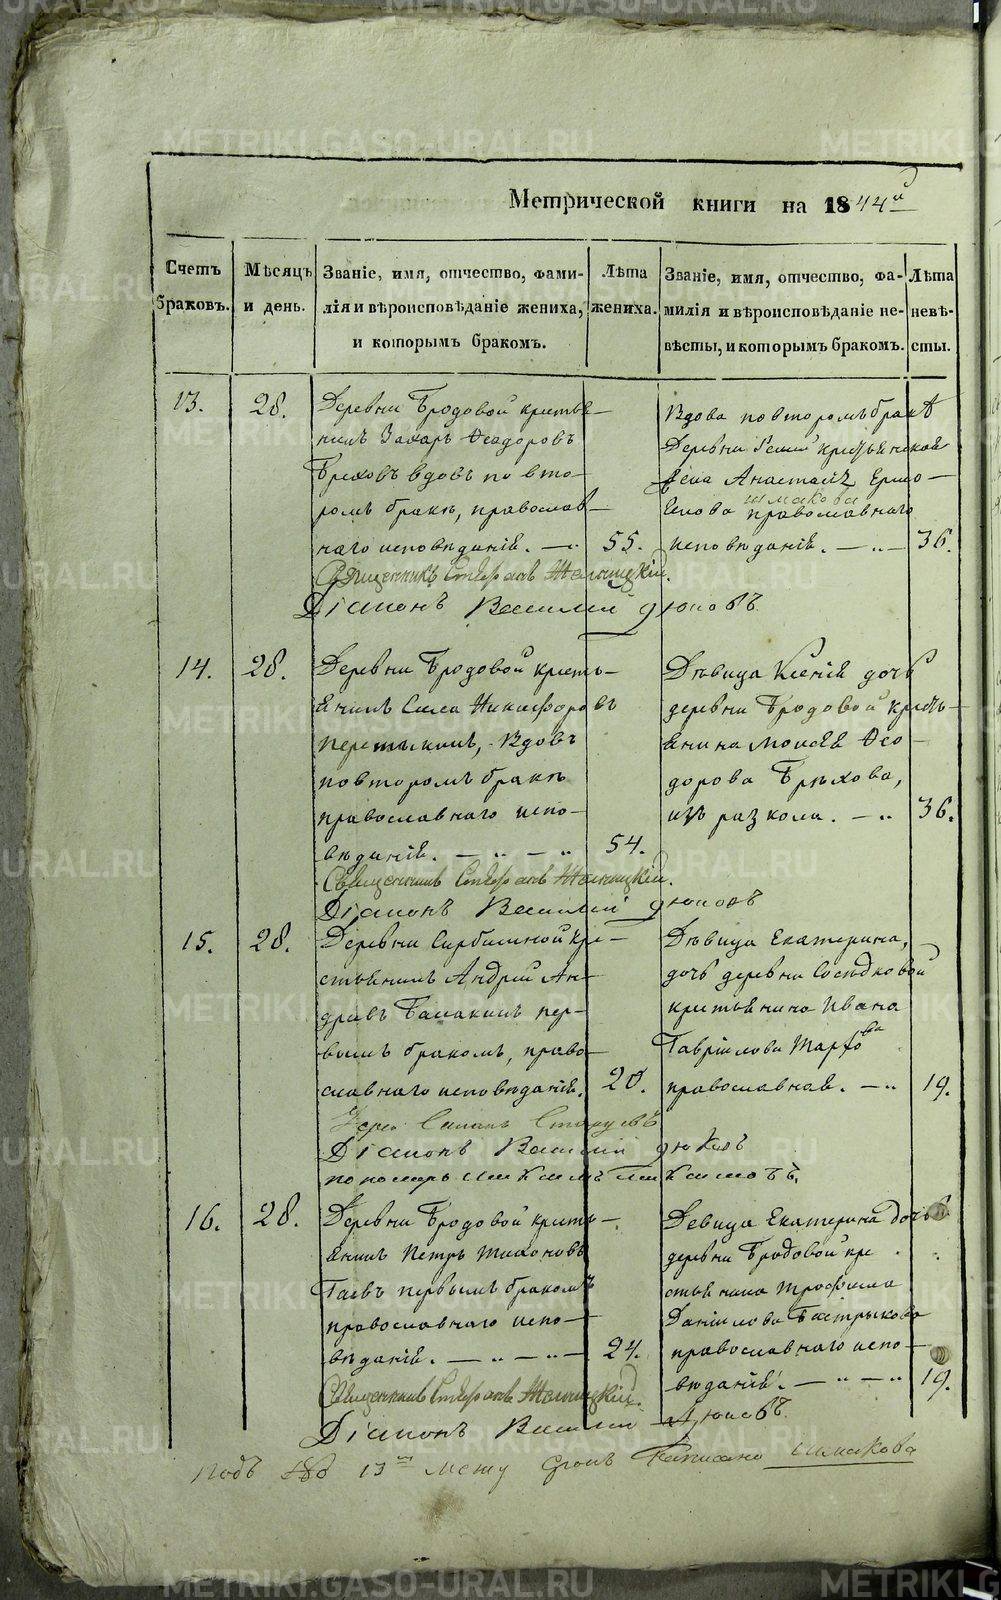 METRIKI.GASO-URAL.RU
Метрической книги на 1844й
Счетъ браковъ.
Мѣсяцъ и день.
Званіе, имя, отчество, фами-
лія и вѣроисповѣданіе жениха,
и которымъ бракомъ.
Лѣта жениха.
Званіе, имя, отчество, фа-
милія и вѣроисповѣданіе не-
вѣсты, и которымъ бракомъ.
Лѣта невѣ-
сты.
13.
28.
Деревни Бродовой крестья-
нинъ Захаръ Ѳеодоровъ
Брековъ вдовъ по вто-
ромъ бракѣ, православ-
наго исповѣданія.
55.
Вдова по второмъ бракѣ
Деревни крестьянская
жена Анастасія Ермо-
Шмакова
лаева православнаго
исповѣданія.
36.
Священникъ Стефанъ
Діаконъ Василій Дюковъ
14.
28.
Деревни Бродовой кресть-
янинъ Сила Никифоровъ
Перетыкинъ, вдовъ
по второмъ бракѣ
православнаго испо-
вѣданія.
54.
Дѣвица Ксенія дочь
деревни Бродовой кресть-
янина Моисея Ѳео-
дорова Брѣхова,
изъ раскола.
36.
Священникъ Стефанъ
Діаконъ Василій Дюковъ
15.
28.
Деревни кре-
стьянинъ Андрей Ан-
дреевъ Балакинъ пер-
вымъ бракомъ, право-
славнаго исповѣданія.
20.
Дѣвица Екатерина,
дочь деревни Сосѣдковой
крестьянина Ивана
Гаврилова
православная.
19.
Іерей
Діаконъ Василій Дюковъ
пономарь
16.
28.
Деревни Бродовой кресть-
янинъ Петръ Тихоновъ
Гаевъ первымъ бракомъ
православнаго испо-
вѣданія.
24.
Девица Екатерина дочь
деревни Бродовой кре
стьянина Трофима
Даніилова Бастрыкова
православнаго испо-
вѣданія.
19.
Священникъ Стефанъ
Діаконъ Василій Дюковъ
Подъ 13мъ между строкъ написано Шмакова